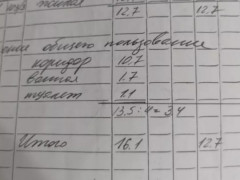 жилая 12,7 12,7
общего пользования
коридор 10,7
ванная 1,7
туалет 1,1
13,5 : 4 = 3,4
Итого 16,1 12,7